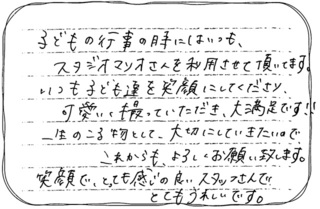 子どもの行事の時にはいつも、
スタジオマリオさんを利用させて頂いてます。
いつも子ども達を笑顔にしてくださり、
可愛いく撮っていただき、大満足です!!
一生のこる物として、大切にしていきたいので
これからも、よろしくお願い致します。
笑顔で、とっても感じの良いスタッフさんで
とてもうれしいです。